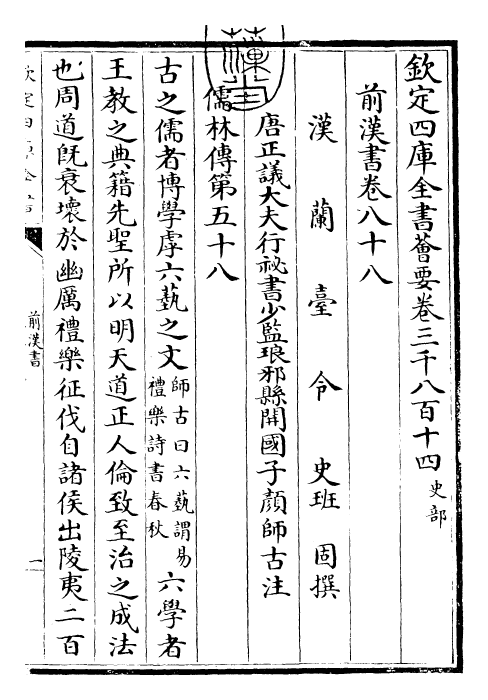 欽定四庫全書薈要卷三千八百十四 史部
前漢書卷八十八
漢蘭臺令史班固撰
唐正議大夫行祕書少監琅邪縣開國子顏師古注
儒林傳第五十八
古之儒者博學虖六藝之文師古曰六藝謂易禮樂詩書春秋六學者
王教之典籍先聖所以明天道正人倫致至治之成法
也周道既衰壞於幽厲禮樂征伐自諸侯出陵夷二百
前漢書
一